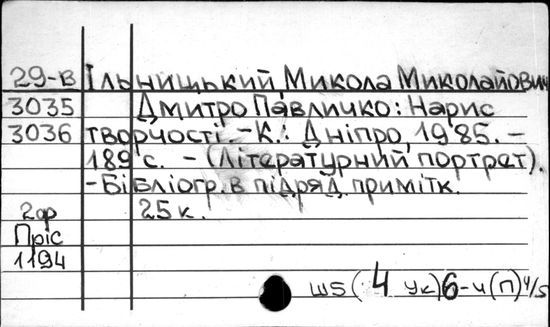 29-В Ільницький Микола Миколайович
3035 Дмитро Павличко: Нарис
3036 творчості. - К.: Дніпро, 1985. -
189 с. - (Літературний портрет).
- Бібліогр. в підряд. примітк.
2ар 25 к.
Пріс
1194
Ш5(4 Ук)6-4(П)4/5